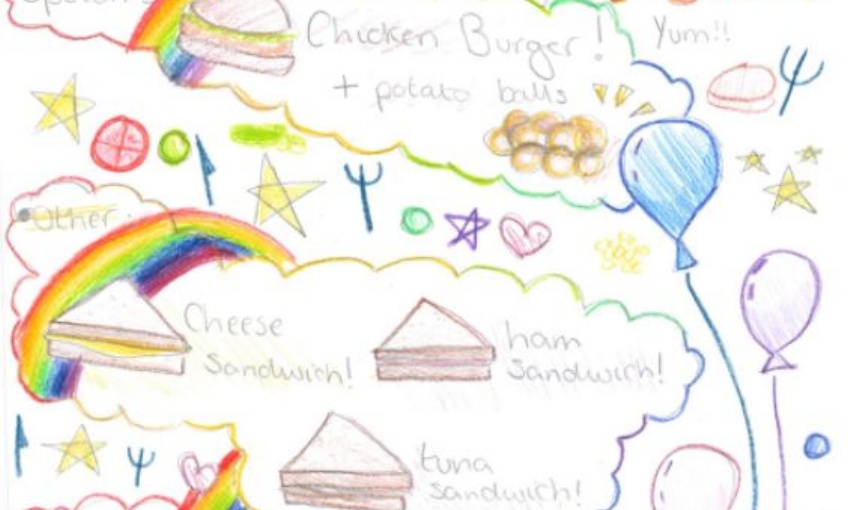 Chicken Burger!
Yum!!
+ potato balls
Other
Cheese
sandwich!
ham
sandwich!
tuna
sandwich!